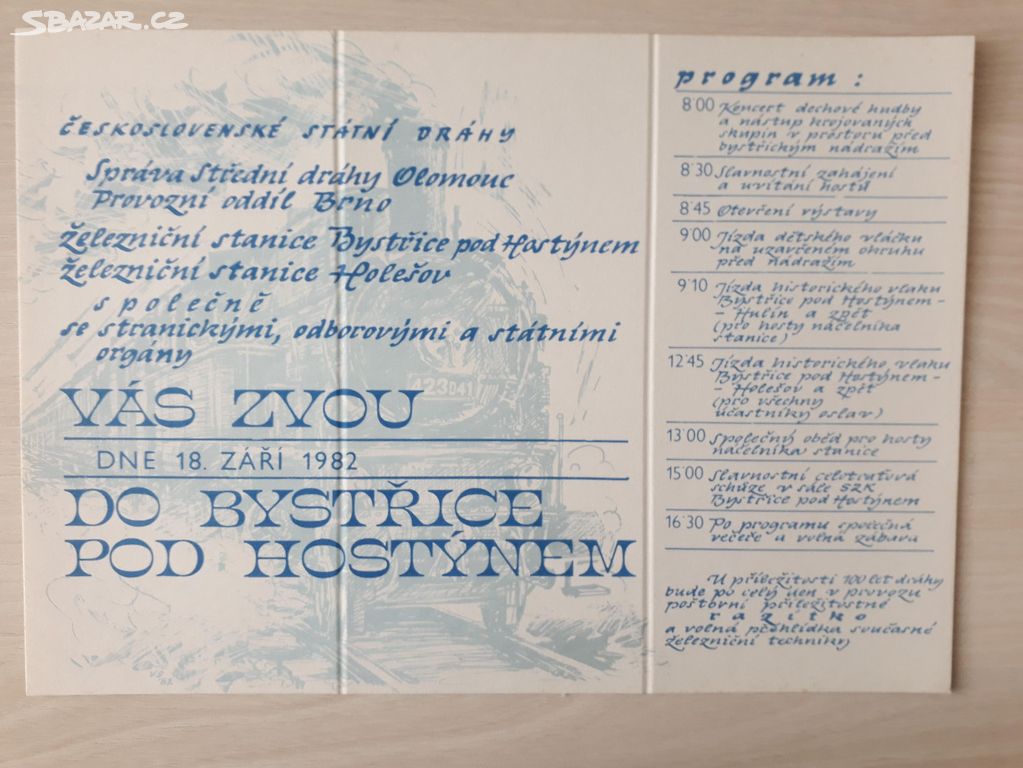 SBAZAR.CZ
ČESKOSLOVENSKÉ STÁTNÍ DRÁHY
Správa Střední dráhy Olomouc
Provozní oddíl Brno
železniční stanice Bystřice pod Hostýnem
železniční stanice Holešov
společně
se stranickými, odborovými a státními
orgány
VÁS ZVOU
DNE 18. ZÁŘÍ 1982
DO BYSTŘICE
POD HOSTÝNEM
423041
program:
8˙00 Koncert dechové hudby
a nástup krojovaných
skupin v prostoru před
bystřickým nádražím
8˙30 Slavnostní zahájení
a uvítání hostů
8˙45 Otevření výstavy
9˙00 Jízda dětského vláčku
na uzavřeném okruhu
před nádražím
9˙10 Jízda historického vlaku
Bystřice pod Hostýnem-
- Hulín a zpět
(pro hosty náčelníka
stanice)
12˙45 Jízda historického vlaku
Bystřice pod Hostýnem-
- Holešov a zpět
(pro všechny
účastníky oslav)
13˙00 Společný oběd pro hosty
náčelníka stanice
15˙00 Slavnostní celotraťová
schůze v sále SZK
Bystřice pod Hostýnem
16˙30 Po programu společná
večeře a volná zábava
U příležitosti 100 let dráhy
bude po celý den v provozu
poštovní příležitostné
razítko
a volná přehlídka současné
železniční techniky